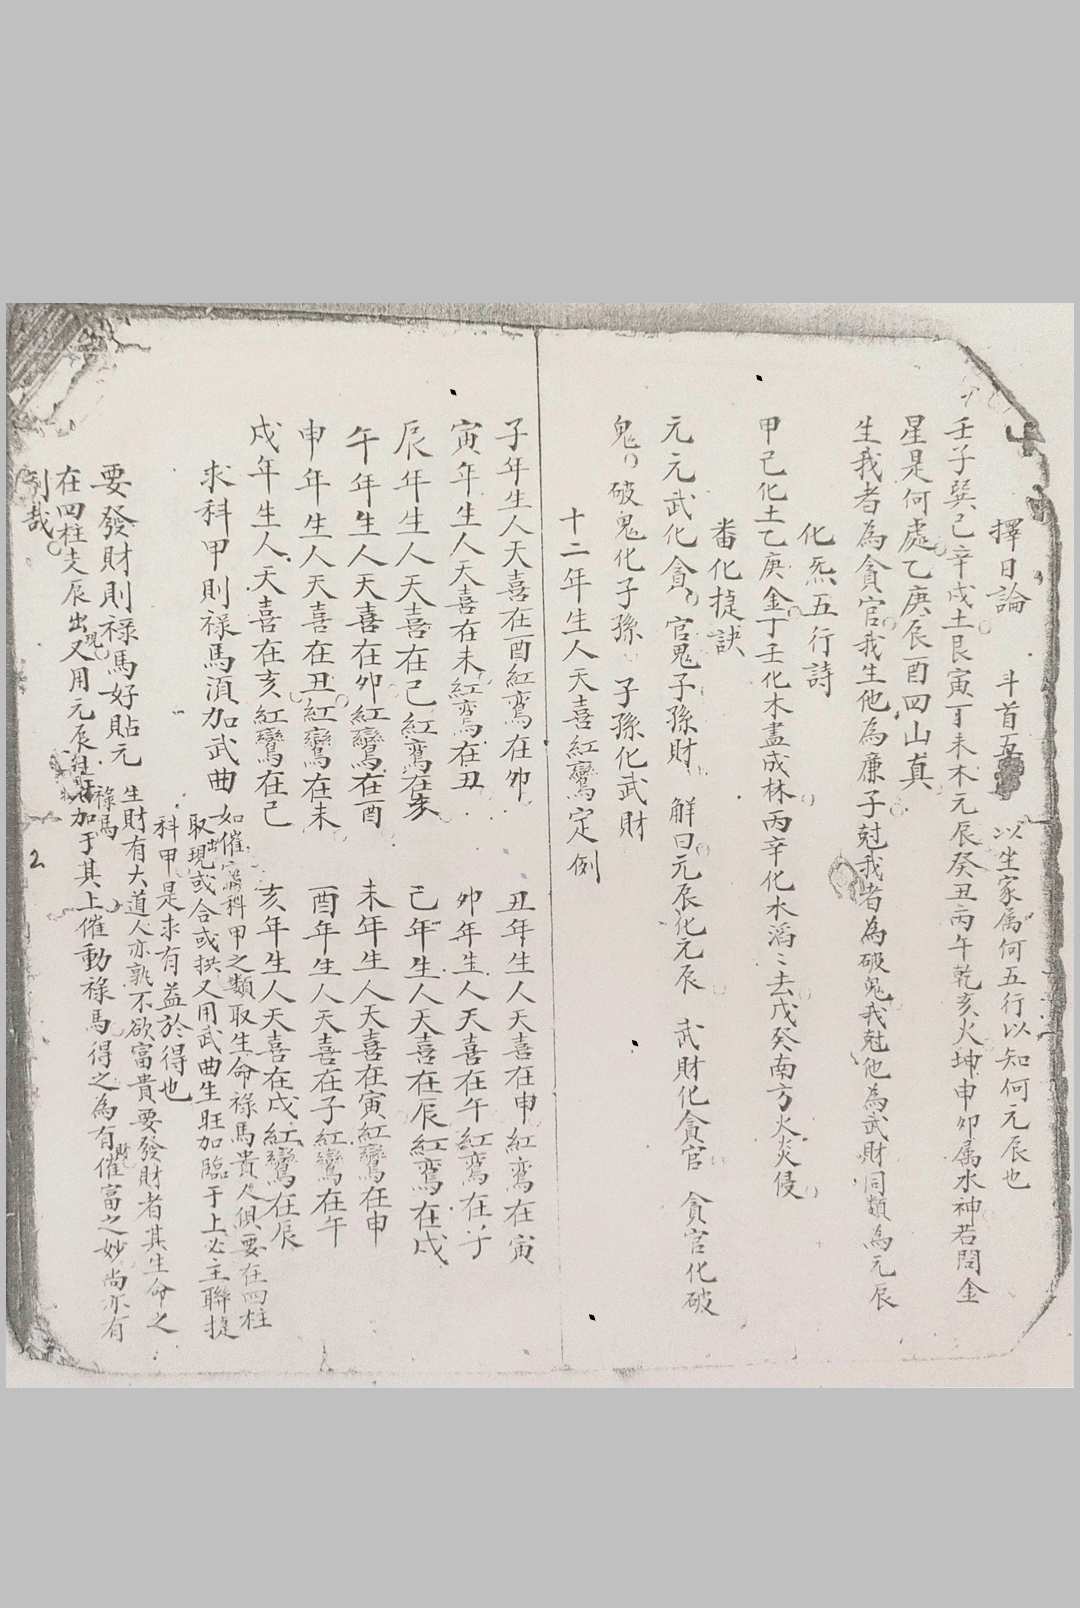 擇日論　斗首五　以坐家属何五行以知何元辰也
壬子巽己辛戌土艮寅丁未木元辰癸丑丙午乾亥火坤申卯属水神若問金
星是何處乙庚辰酉四山真
生我者為貪官我生他為廉子尅我者為破鬼我尅他為武財同類為元辰
化炁五行詩
甲己化土乙庚金丁壬化木盡成林丙辛化水滔〻去戊癸南方火炎侵
番化㨗訣
元元武化貪〻官鬼子孫財　解曰元辰化元辰　武財化貪官　貪官化破
鬼〻破鬼化子孫　子孫化武財
十二年生人天喜紅鸞定例
子年生人天喜在酉紅鸞在卯　丑年生人天喜在申紅鸞在寅
寅年生人天喜在未紅鸞在丑　卯年生人天喜在午紅鸞在子
辰年生人天喜在巳紅鸞在亥　巳年生人天喜在辰紅鸞在戌
午年生人天喜在卯紅鸞在酉　未年生人天喜在寅紅鸞在申
申年生人天喜在丑紅鸞在未　酉年生人天喜在子紅鸞在午
戌年生人天喜在亥紅鸞在巳　亥年生人天喜在戌紅鸞在辰
求科甲則禄馬湏加武曲　如催官科甲之類取生命禄馬貴人俱要在四柱
取現出或合或拱又用武曲生旺加臨于上必主聯捷
科甲是求有益於得也
要發財則禄馬好貼元　生財有大道人亦孰不欲富貴要發財者其生命之
禄馬
在四柱支辰出現又用元辰生旺加于其上催動禄馬得之為有催富之妙尚亦有
利哉
2